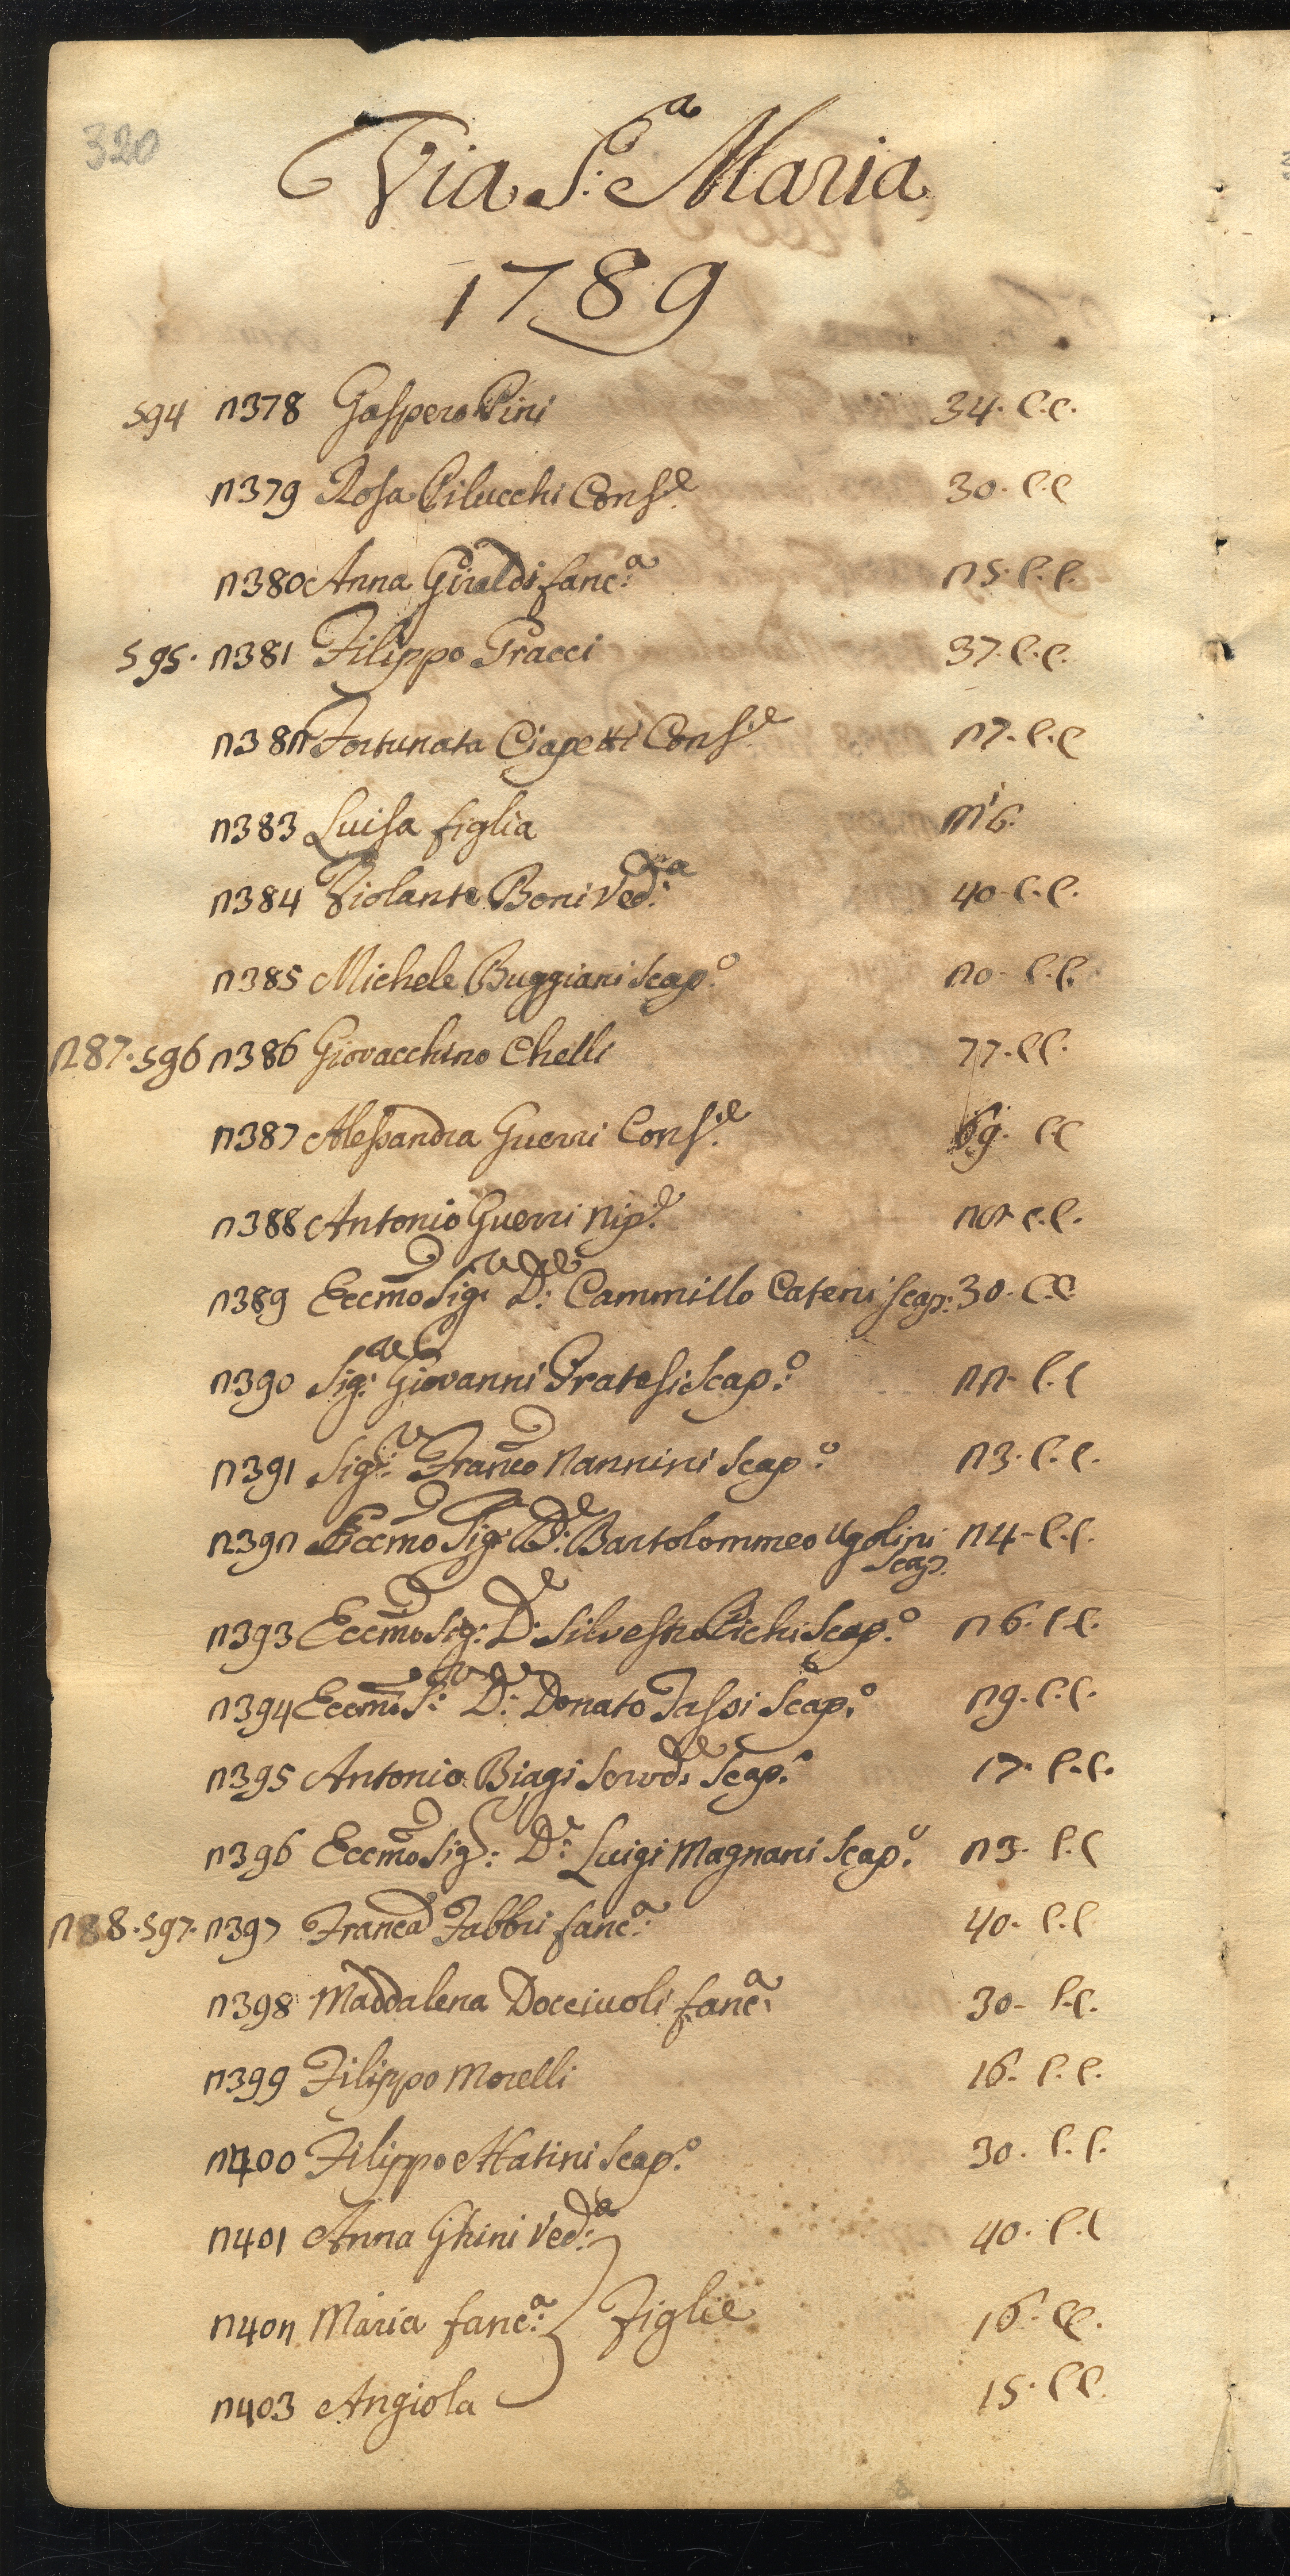 320
Via S.a Maria
1789
594 2378 Gaspero Pini 34. C.C.
2379 Rosa Pilucchi Cons.e 30. C.C
2380 Anna Giraldi fanc.a 25. C.C.
595. 2381 Filippo Gracci 37. C.C.
2382 Fortunata Ciapetti Cons.e 27. C.C
2383 Luisa figlia m.i 6.
2384 Violante Boni Ved.a 40. C.C.
2385 Michele Buggiani Scap.o 20. C.C.
287. 596 2386 Giovacchino Chelli 77. CC.
2387 Alessandra Guerri Cons.e 69. CC
2388 Antonio Guerri Nip.e C.C.
2389 Eccmo Sig.r D.e Cammillo Cateni Scap: 30. CC
2390 Sig.r Giovanni Pratesi Scap.o 22. C.C
2391 Sig.r Franco Nannini Scap.o 23. C.C.
2392 Eccmo Sig.r D.e Bartolommeo Ugolini 24. C.C.
Scap.
2393 Eccmo Sig: D.e Silvestro Pichi Scap.o 26. C.C.
2394 Eccmo S.r D.e Donato Tassi Scap.o 29. C.C.
2395 Antonio Biagi Serv.e Scap.o 17. C.C.
2396 Eccmo Sig.r D.r Luigi Magnani Scap.o 23. C.C
288. 597. 2397 Franca Fabbri fanc.a 40. C.C
2398 Maddalena Docciuoli fanc.a 30. C.C.
2399 Filippo Morelli 16. C.C.
2400 Filippo Matini Scap.o 30. C.C.
2401 Anna Ghini Ved.a 40. C.C
2402 Maria fanc.a } Figlie 16. CC.
2403 Angiola 15. CC.